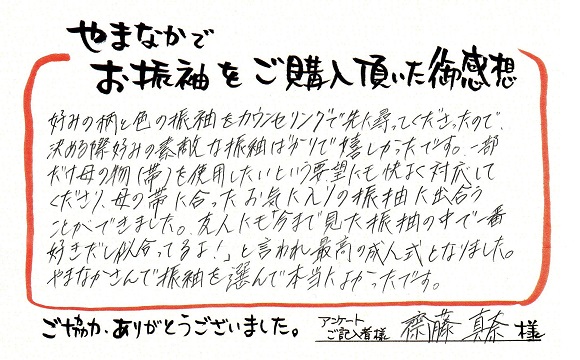 やまなかで
お振袖をご購入頂いた御感想
好みの柄と色の振袖をカウンセリングで先に尋ってくださったので、
決める際好みの素敵な振袖ばかりで嬉しかったです。一部
だけ母の物(帯)を使用したいという要望にも快よく対応して
くださり、母の帯に合ったお気に入りの振袖に出合う
ことができました。友人にも「今まで見た振袖の中で一番
好きだし似合ってるよ!」と言われ最高の成人式となりました。
やまなかさんで振袖を選んで本当によかったです。
ご協力、ありがとうございました。
アンケートご記入者様 齋藤 真奈 様